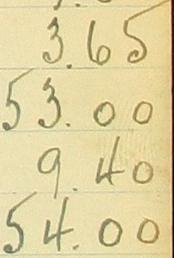 3.65
53.00
9.40
54.00